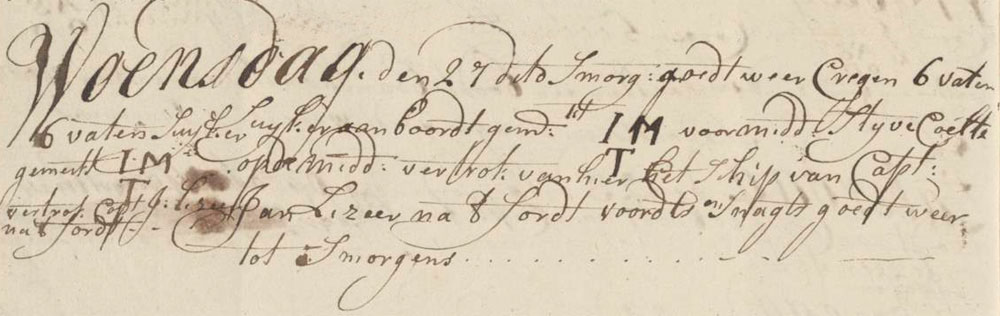 Woensdag. den 27 dito Smorg: goedt weer Cregen 6 vaten
6 vaten Suyker Suyker aan boordt gem: tt IM voormidd Styve Coelte
gemerkt IM T op de midd: vertrok. van hier T het Schip van Capt:
vertrok Capt J: Lezeer Jan Lezeer na t fordt voordts en Snagts goedt weer
na t fordt
tot Smorgens